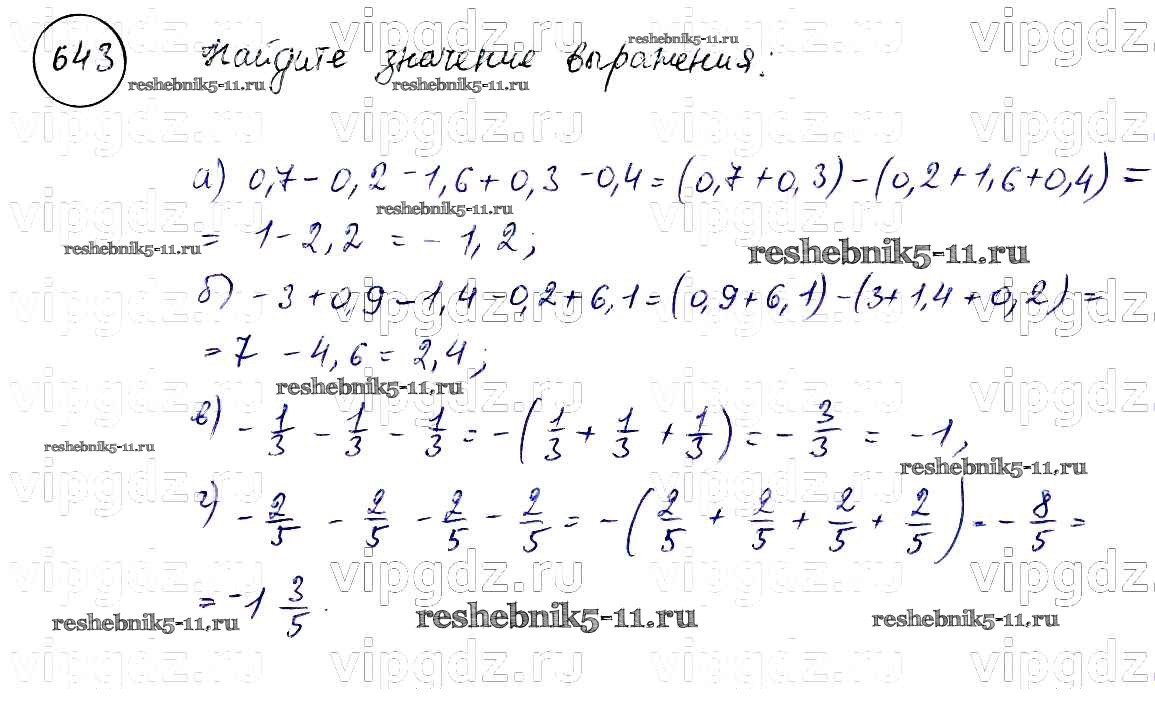 643 Найдите значение выражения:
а) 0,7 - 0,2 - 1,6 + 0,3 - 0,4 = (0,7 + 0,3) - (0,2 + 1,6 + 0,4) =
= 1 - 2,2 = - 1,2;
б) - 3 + 0,9 - 1,4 - 0,2 + 6,1 = (0,9 + 6,1) - (3 + 1,4 + 0,2) =
= 7 - 4,6 = 2,4;
в) - 1/3 - 1/3 - 1/3 = - (1/3 + 1/3 + 1/3) = - 3/3 = -1;
г) - 2/5 - 2/5 - 2/5 - 2/5 = - (2/5 + 2/5 + 2/5 + 2/5) = - 8/5 =
= -1 3/5.
vipgdz.ru
reshebnik5-11.ru